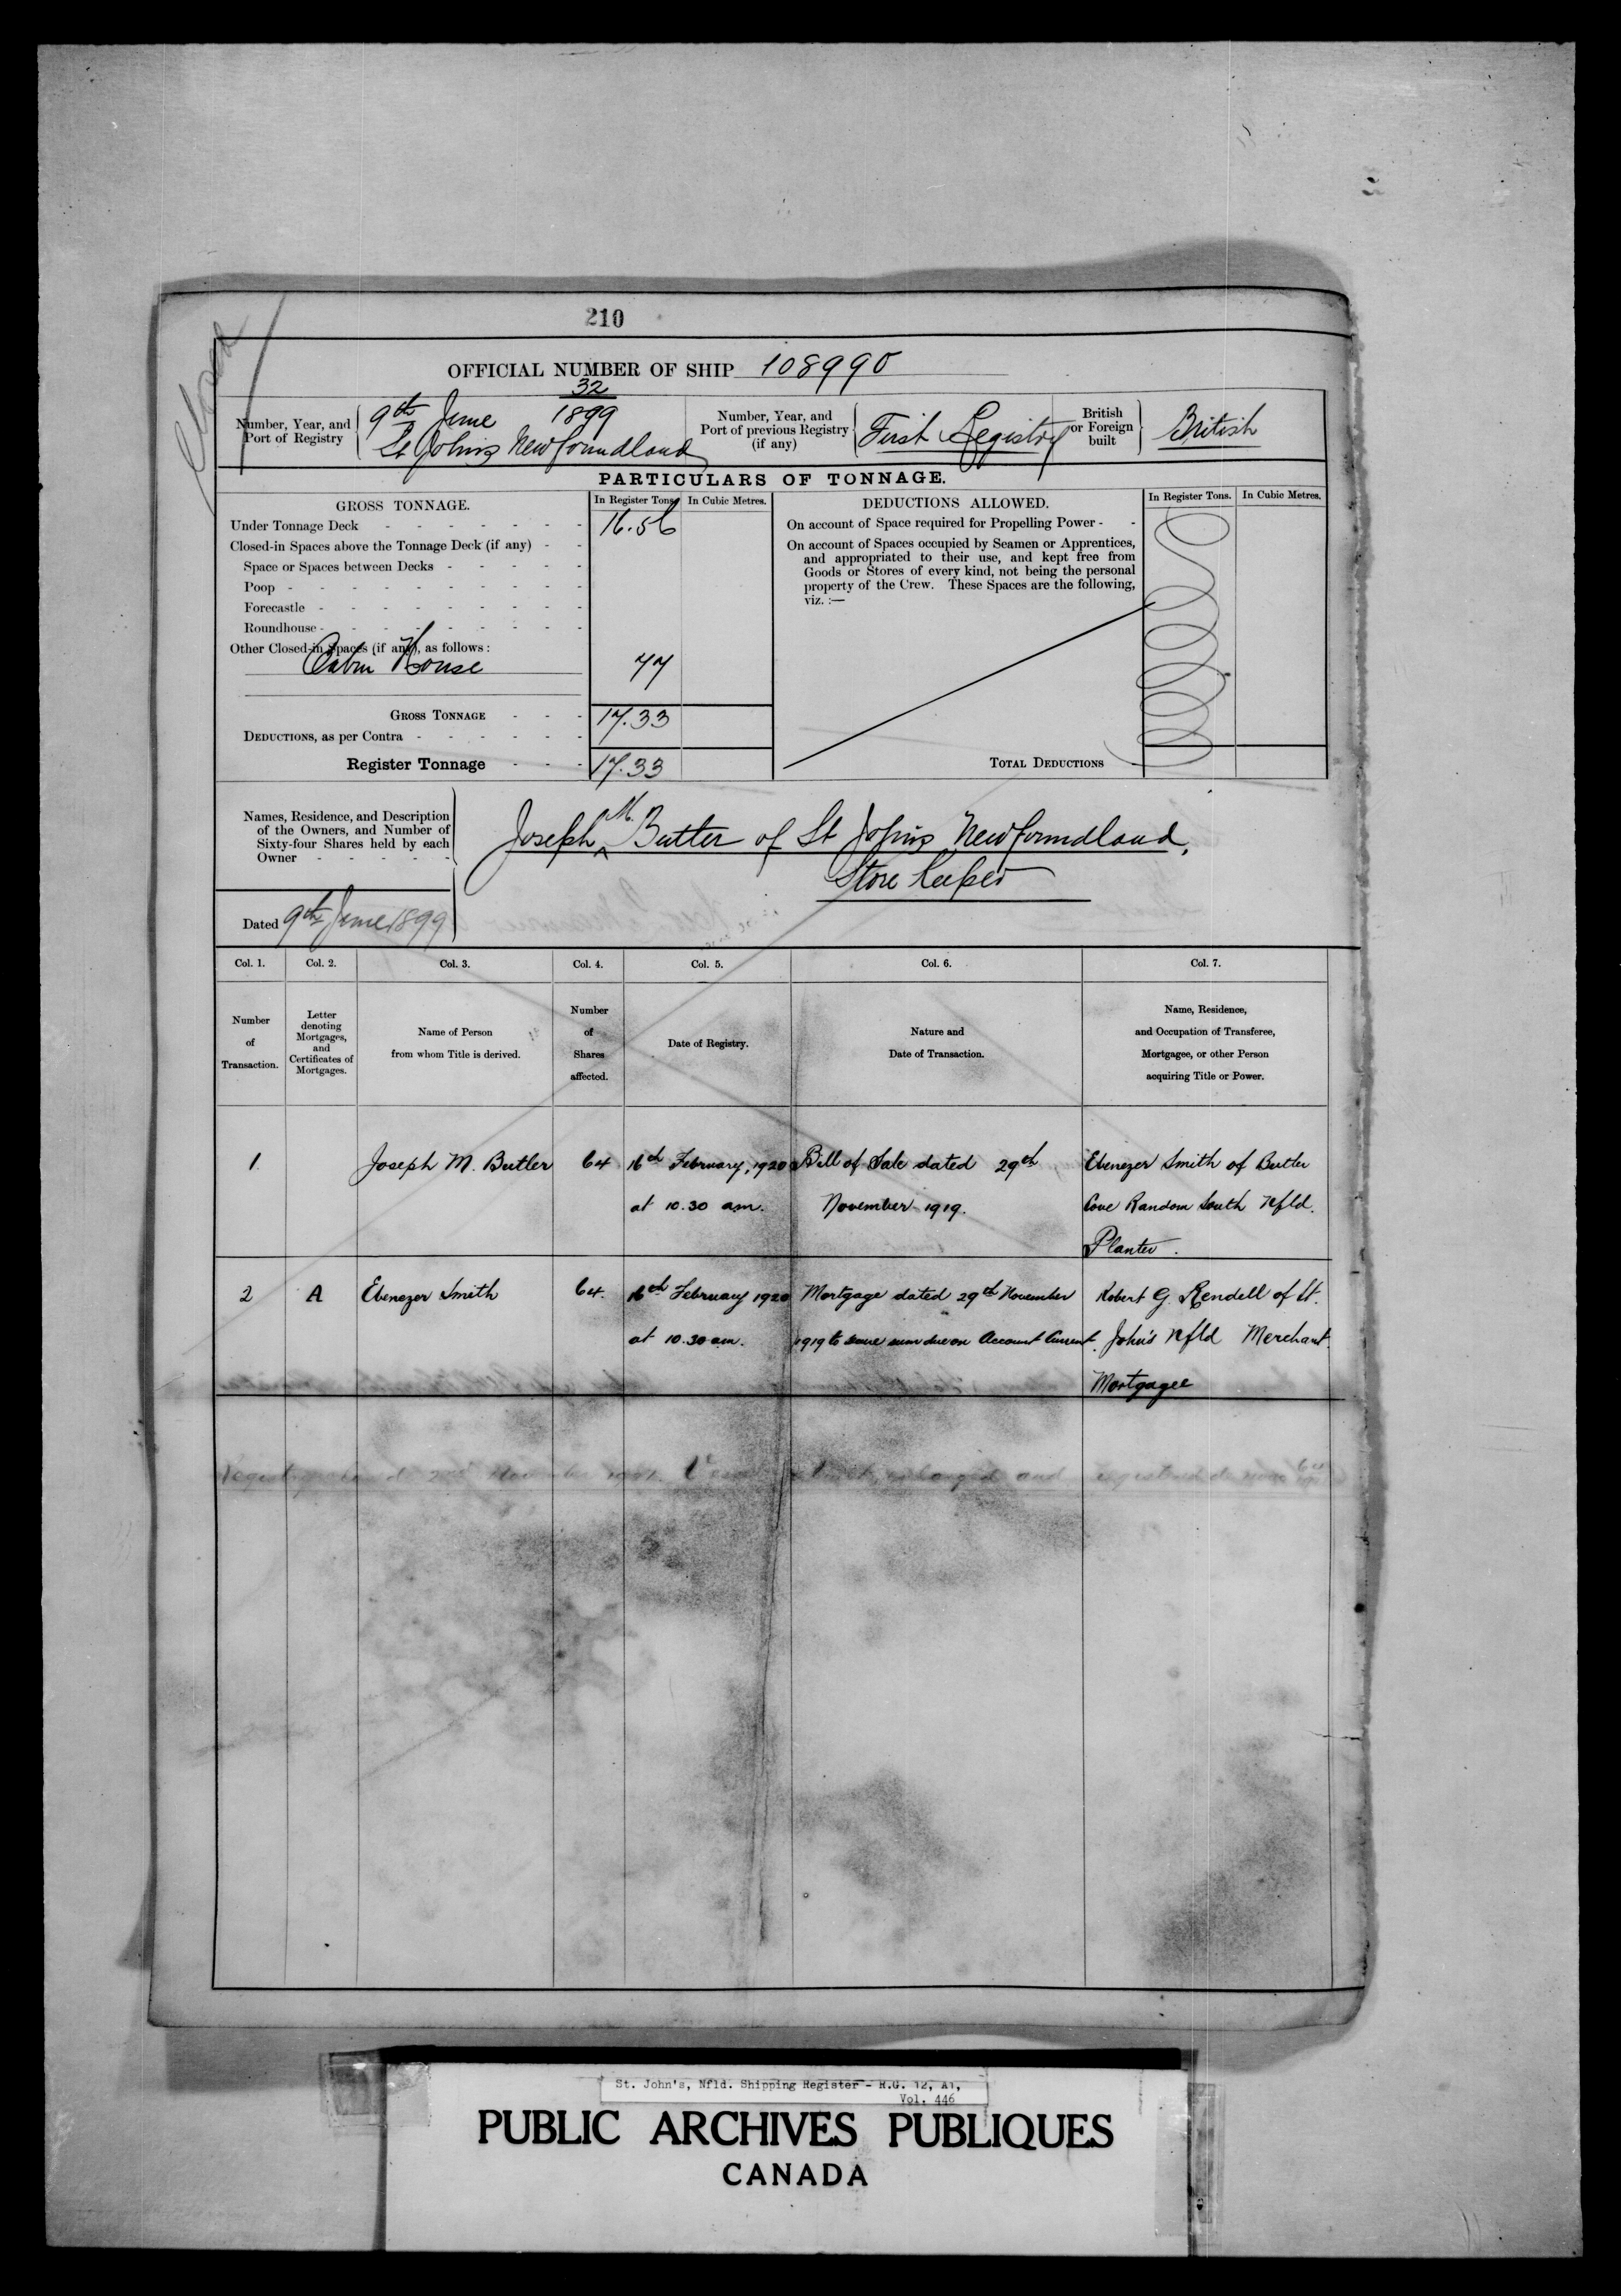 210
Closed
OFFICIAL NUMBER OF SHIP 108990
Number, Year, and Port of Registry
32
9th June 1899
St John's Newfoundland
Number, Year, and Port of previous Registry (if any)
First Registry
British or Foreign built
British
PARTICULARS OF TONNAGE.
GROSS TONNAGE.
In Register Tons.
In Cubic Metres.
DEDUCTIONS ALLOWED.
In Register Tons.
In Cubic Metres.
Under Tonnage Deck 16.56
Closed-in Spaces above the Tonnage Deck (if any)
Space or Spaces between Decks
Poop
Forecastle
Roundhouse
Other Closed-in Spaces (if any), as follows:
Cabin House 77
GROSS TONNAGE 17.33
DEDUCTIONS, as per Contra
Register Tonnage 17.33
On account of Space required for Propelling Power
On account of Spaces occupied by Seamen or Apprentices,
and appropriated to their use, and kept free from
Goods or Stores of every kind, not being the personal
property of the Crew. These Spaces are the following,
viz. :—
TOTAL DEDUCTIONS
Names, Residence, and Description
of the Owners, and Number of
Sixty-four Shares held by each
Owner
Joseph M. Butler of St John's Newfoundland,
Store keeper
Dated 9th June 1899
Col. 1. Col. 2. Col. 3. Col. 4. Col. 5. Col. 6. Col. 7.
Number of Transaction.
Letter denoting Mortgages, and Certificates of Mortgages.
Name of Person from whom Title is derived.
Number of Shares affected.
Date of Registry.
Nature and Date of Transaction.
Name, Residence, and Occupation of Transferee, Mortgagee, or other Person acquiring Title or Power.
1 Joseph M. Butler 64 16th February, 1920 Bill of Sale dated 29th Ebenezer Smith of Butler
at 10.30 a.m. November 1919. Cove Random South Nfld.
Planter.
2 A Ebenezer Smith 64. 16th February 1920 Mortgage dated 29th November Robert G. Rendell of St.
at 10.30 a.m. 1919 to secure sum due on Account Current. John's Nfld Merchant.
Mortgagee
Registry closed 2nd November Vessel enlarged and registered de novo
St. John's, Nfld. Shipping Register - R.G. 12, A1,
Vol. 446
PUBLIC ARCHIVES PUBLIQUES
CANADA